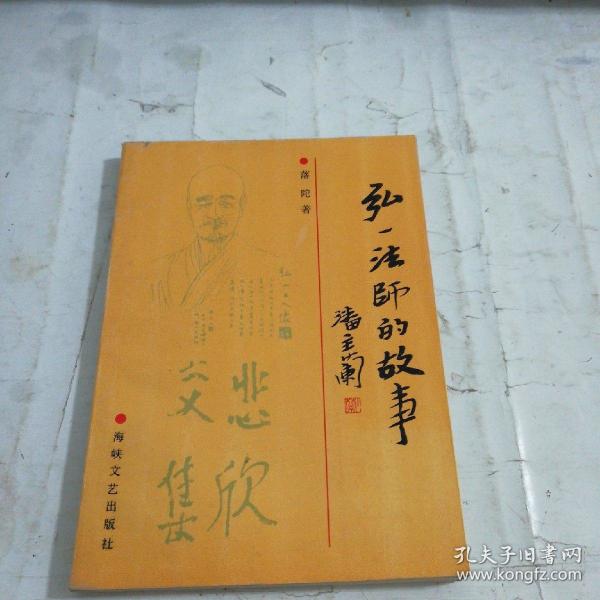 弘一法師的故事
潘主蘭
落陀著
弘一上人像
悲欣
交集
海峡文艺出版社
孔夫子旧书网
www.kongfz.com